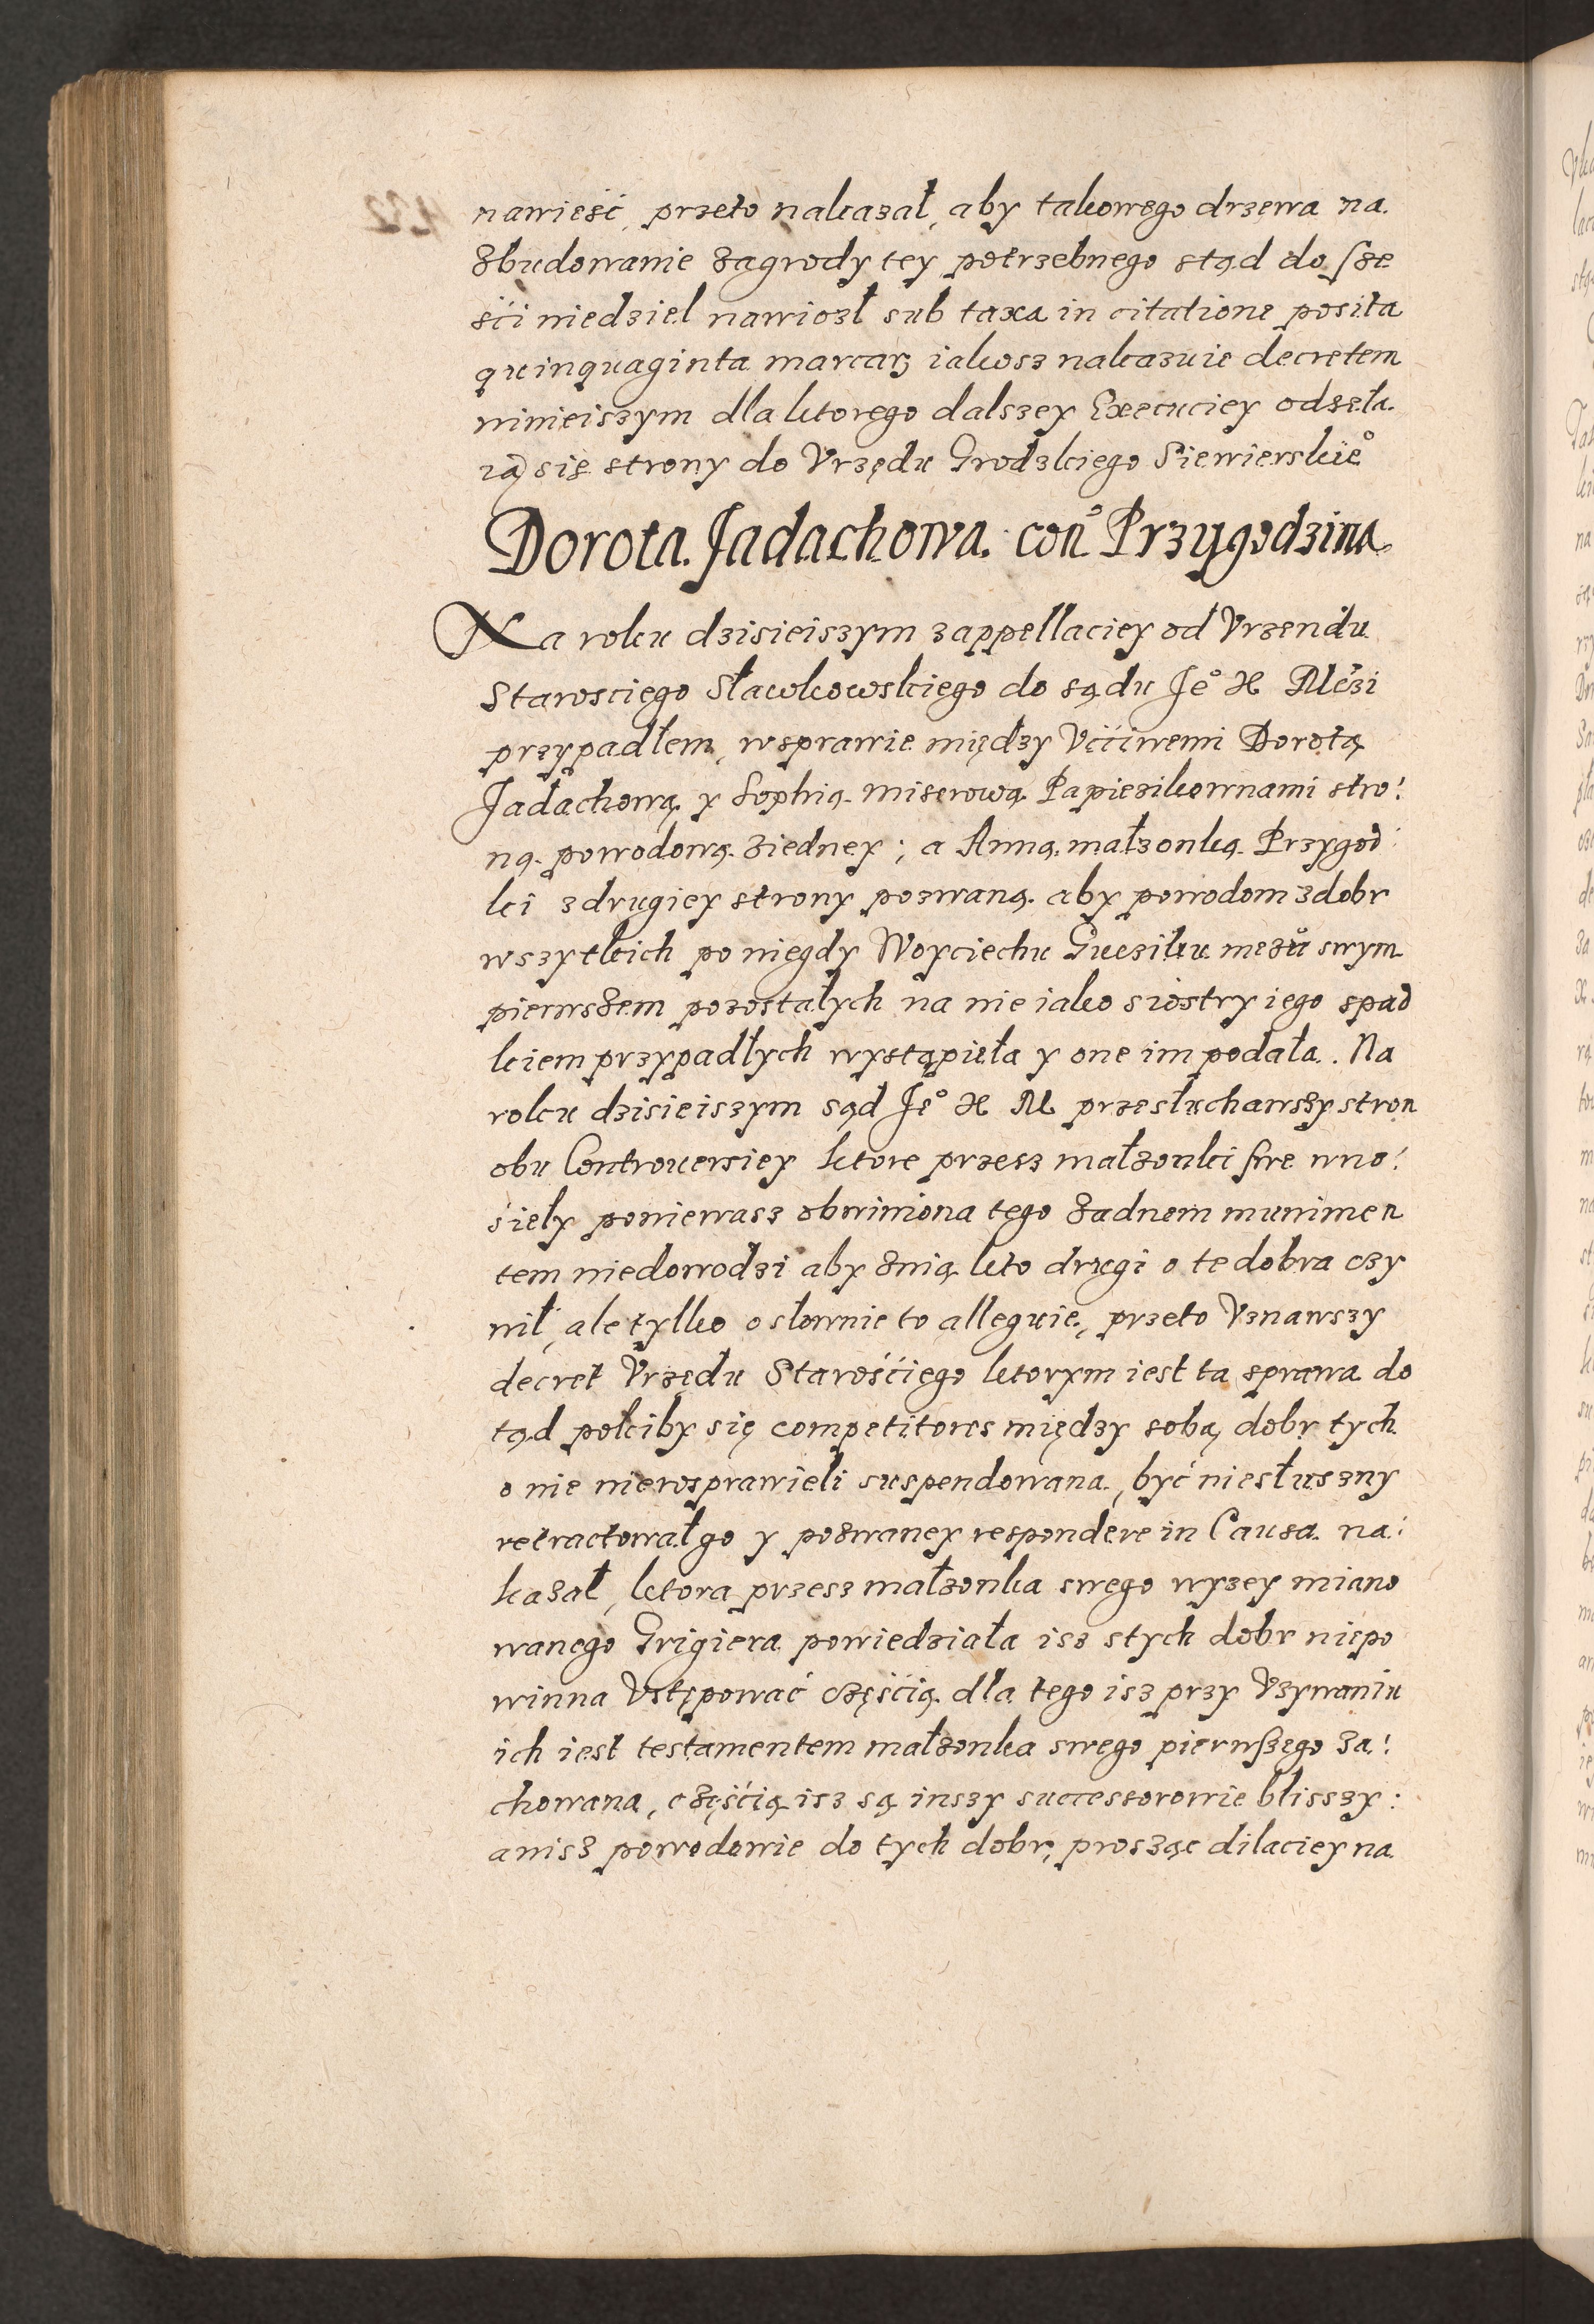 nawieść, przeto nakazał, aby takowego drzewa na.
zbudowanie zagrody tey potrzebnego stąd do sze
ści niedziel nawiozł sub taxa in citatione posita
quinquaginta marcarz iakosz nakazuie decretem
ninieiszym dla ktorego dalszey Executiey odseła.
ią się strony do Vrzędu Grodzkiego Siewierskie°
Dorota Jadachowa. con° Przygodzina
Na roku dzisieiszym zappellaciey od Vrzendu
Starosciego Sławkowskiego do sądu Je° X Mczi
przypadłem, wsprawie między Vććiwemi Dorotą
Jadachową y Sophią miserową Papiezikownami stro:
ną powodową ziedney; a Anną małzonką Przygod:
ki zdrugiey strony pozwaną aby powodom zdobr
wszytkich po niegdy Woyciechu Guczikiu mezu swym
pierwszem pozostałych na nie iako siostry iego spad
kiem przypadłych wystąpieła y one im podała. Na
roku dzisieiszym sąd Je° X M przesłuchawszy stron
obu Controuersiey ktore przesz małzonki swe wno:
sieły poniewasz obwiniona tego zadnem munimen
tem niedowodzi aby znią kto drugi o te dobra czy
nił, ale tylko osłownie to alleguie, przeto Vznawszy
decret Vrzędu Starośćiego ktorym iest ta sprawa do
tąd pokiby się competitores między sobą dobr tych
o nie nierosprawieli suspendowana, być niesłuszny
retractował go y pozwaney respondere in Causa na:
kazał, ktora przesz małzonka swego wyzey miano
wanego Grigiera powiedziała isz stych dobr niepo
winna Vstępować częśćią dla tego isz przy Vzywaniu
ich iest testamentem małzonka swego pierwszego za:
chowana, częśćią isz są inszy successorowie blisszy:
anisz powodowie do tych dobr, prosząc dilaciey na